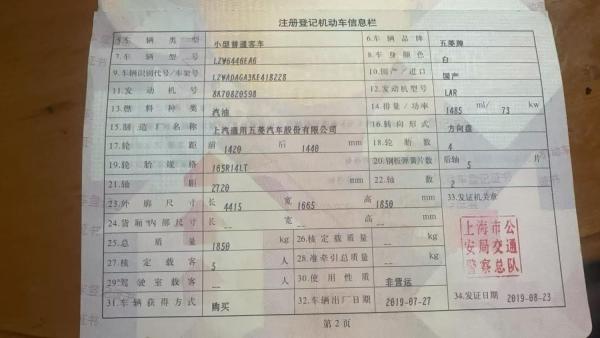 注册登记机动车信息栏
5.车辆类型 小型普通客车 6.车辆品牌 五菱牌
7.车辆型号 LZW6446EAG 8.车身颜色 白
9.车辆识别代号/车架号 LZWADAGA3KE418228 10.国产/进口 国产
11.发动机号 8K70820598 12.发动机型号 LAR
13.燃料种类 汽油 14.排量/功率 1485 ml/ 73 kw
15.制造厂名称 上汽通用五菱汽车股份有限公司 16.转向形式 方向盘
17.轮距 前 1420 后 1440 mm 18.轮胎数 4
19.轮胎规格 165R14LT 20.钢板弹簧片数 后轴 5 片
21.轴距 2720 mm 22.轴数 2
23.外廓尺寸 长 4415 宽 1665 高 1850 mm 33.发证机关章
24.货厢内部尺寸 长 -- 宽 -- 高 -- mm
25.总质量 1850 kg 26.核定载质量 -- kg
27.核定载客 5 人 28.准牵引总质量 -- kg
29.驾驶室载客 -- 人 30.使用性质 非营运
31.车辆获得方式 购买 32.车辆出厂日期 2019-07-27 34.发证日期 2019-08-23
上海市公
安局交通
警察总队
第2页